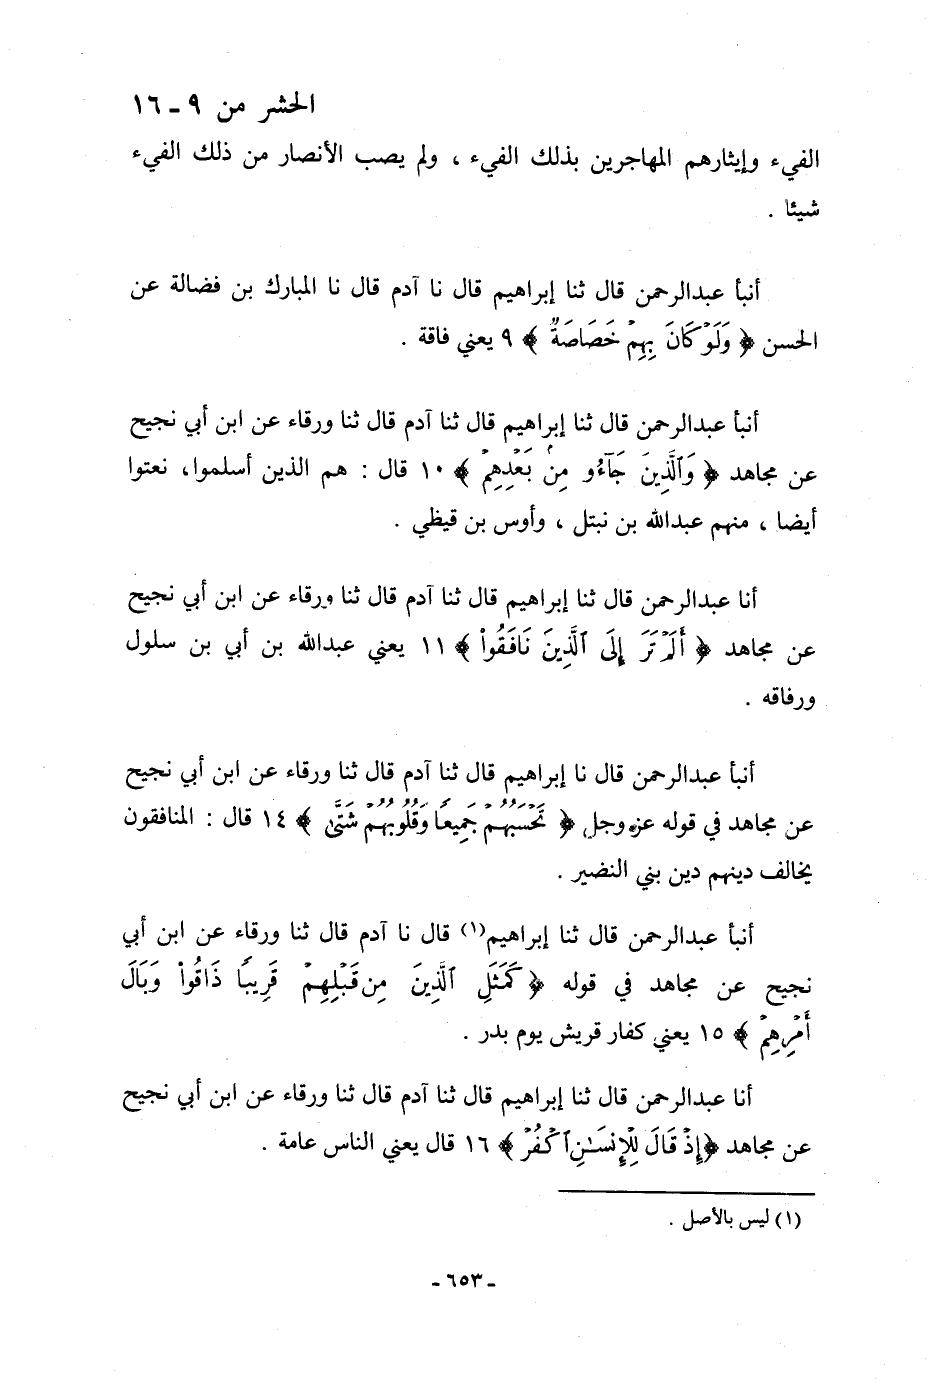 الحشر من ٩ - ١٦
الفيء وإيثارهم المهاجرين بذلك الفيء ، ولم يصب الأنصار من ذلك الفيء
شيئا .
أنبأ عبدالرحمن قال ثنا إبراهيم قال نا آدم قال نا المبارك بن فضالة عن
الحسن ﴿ وَلَوْ كَانَ بِهِمْ خَصَاصَةٌ ﴾ ٩ يعني فاقة .
أنبأ عبدالرحمن قال ثنا إبراهيم قال ثنا آدم قال ثنا ورقاء عن ابن أبي نجيح
عن مجاهد ﴿ وَٱلَّذِينَ جَآءُو مِنۢ بَعْدِهِمْ ﴾ ١٠ قال : هم الذين أسلموا، نعتوا
أيضا ، منهم عبدالله بن نبتل ، وأوس بن قيظي .
أنا عبدالرحمن قال ثنا إبراهيم قال ثنا آدم قال ثنا ورقاء عن ابن أبي نجيح
عن مجاهد ﴿ أَلَمْ تَرَ إِلَى ٱلَّذِينَ نَافَقُوا۟ ﴾ ١١ يعني عبدالله بن أبي بن سلول
ورفاقه .
أنبأ عبدالرحمن قال نا إبراهيم قال ثنا آدم قال ثنا ورقاء عن ابن أبي نجيح
عن مجاهد في قوله عز وجل ﴿ تَحْسَبُهُمْ جَمِيعًا وَقُلُوبُهُمْ شَتَّىٰ ﴾ ١٤ قال : المنافقون
يخالف دينهم دين بني النضير .
أنبأ عبدالرحمن قال ثنا إبراهيم(١) قال نا آدم قال ثنا ورقاء عن ابن أبي
نجيح عن مجاهد في قوله ﴿ كَمَثَلِ ٱلَّذِينَ مِن قَبْلِهِمْ قَرِيبًا ذَاقُوا۟ وَبَالَ
أَمْرِهِمْ ﴾ ١٥ يعني كفار قريش يوم بدر .
أنا عبدالرحمن قال ثنا إبراهيم قال ثنا آدم قال ثنا ورقاء عن ابن أبي نجيح
عن مجاهد ﴿إِذْ قَالَ لِلْإِنسَـٰنِ ٱكْفُرْ ﴾ ١٦ قال يعني الناس عامة .
(١) ليس بالأصل .
- ٦٥٣ -